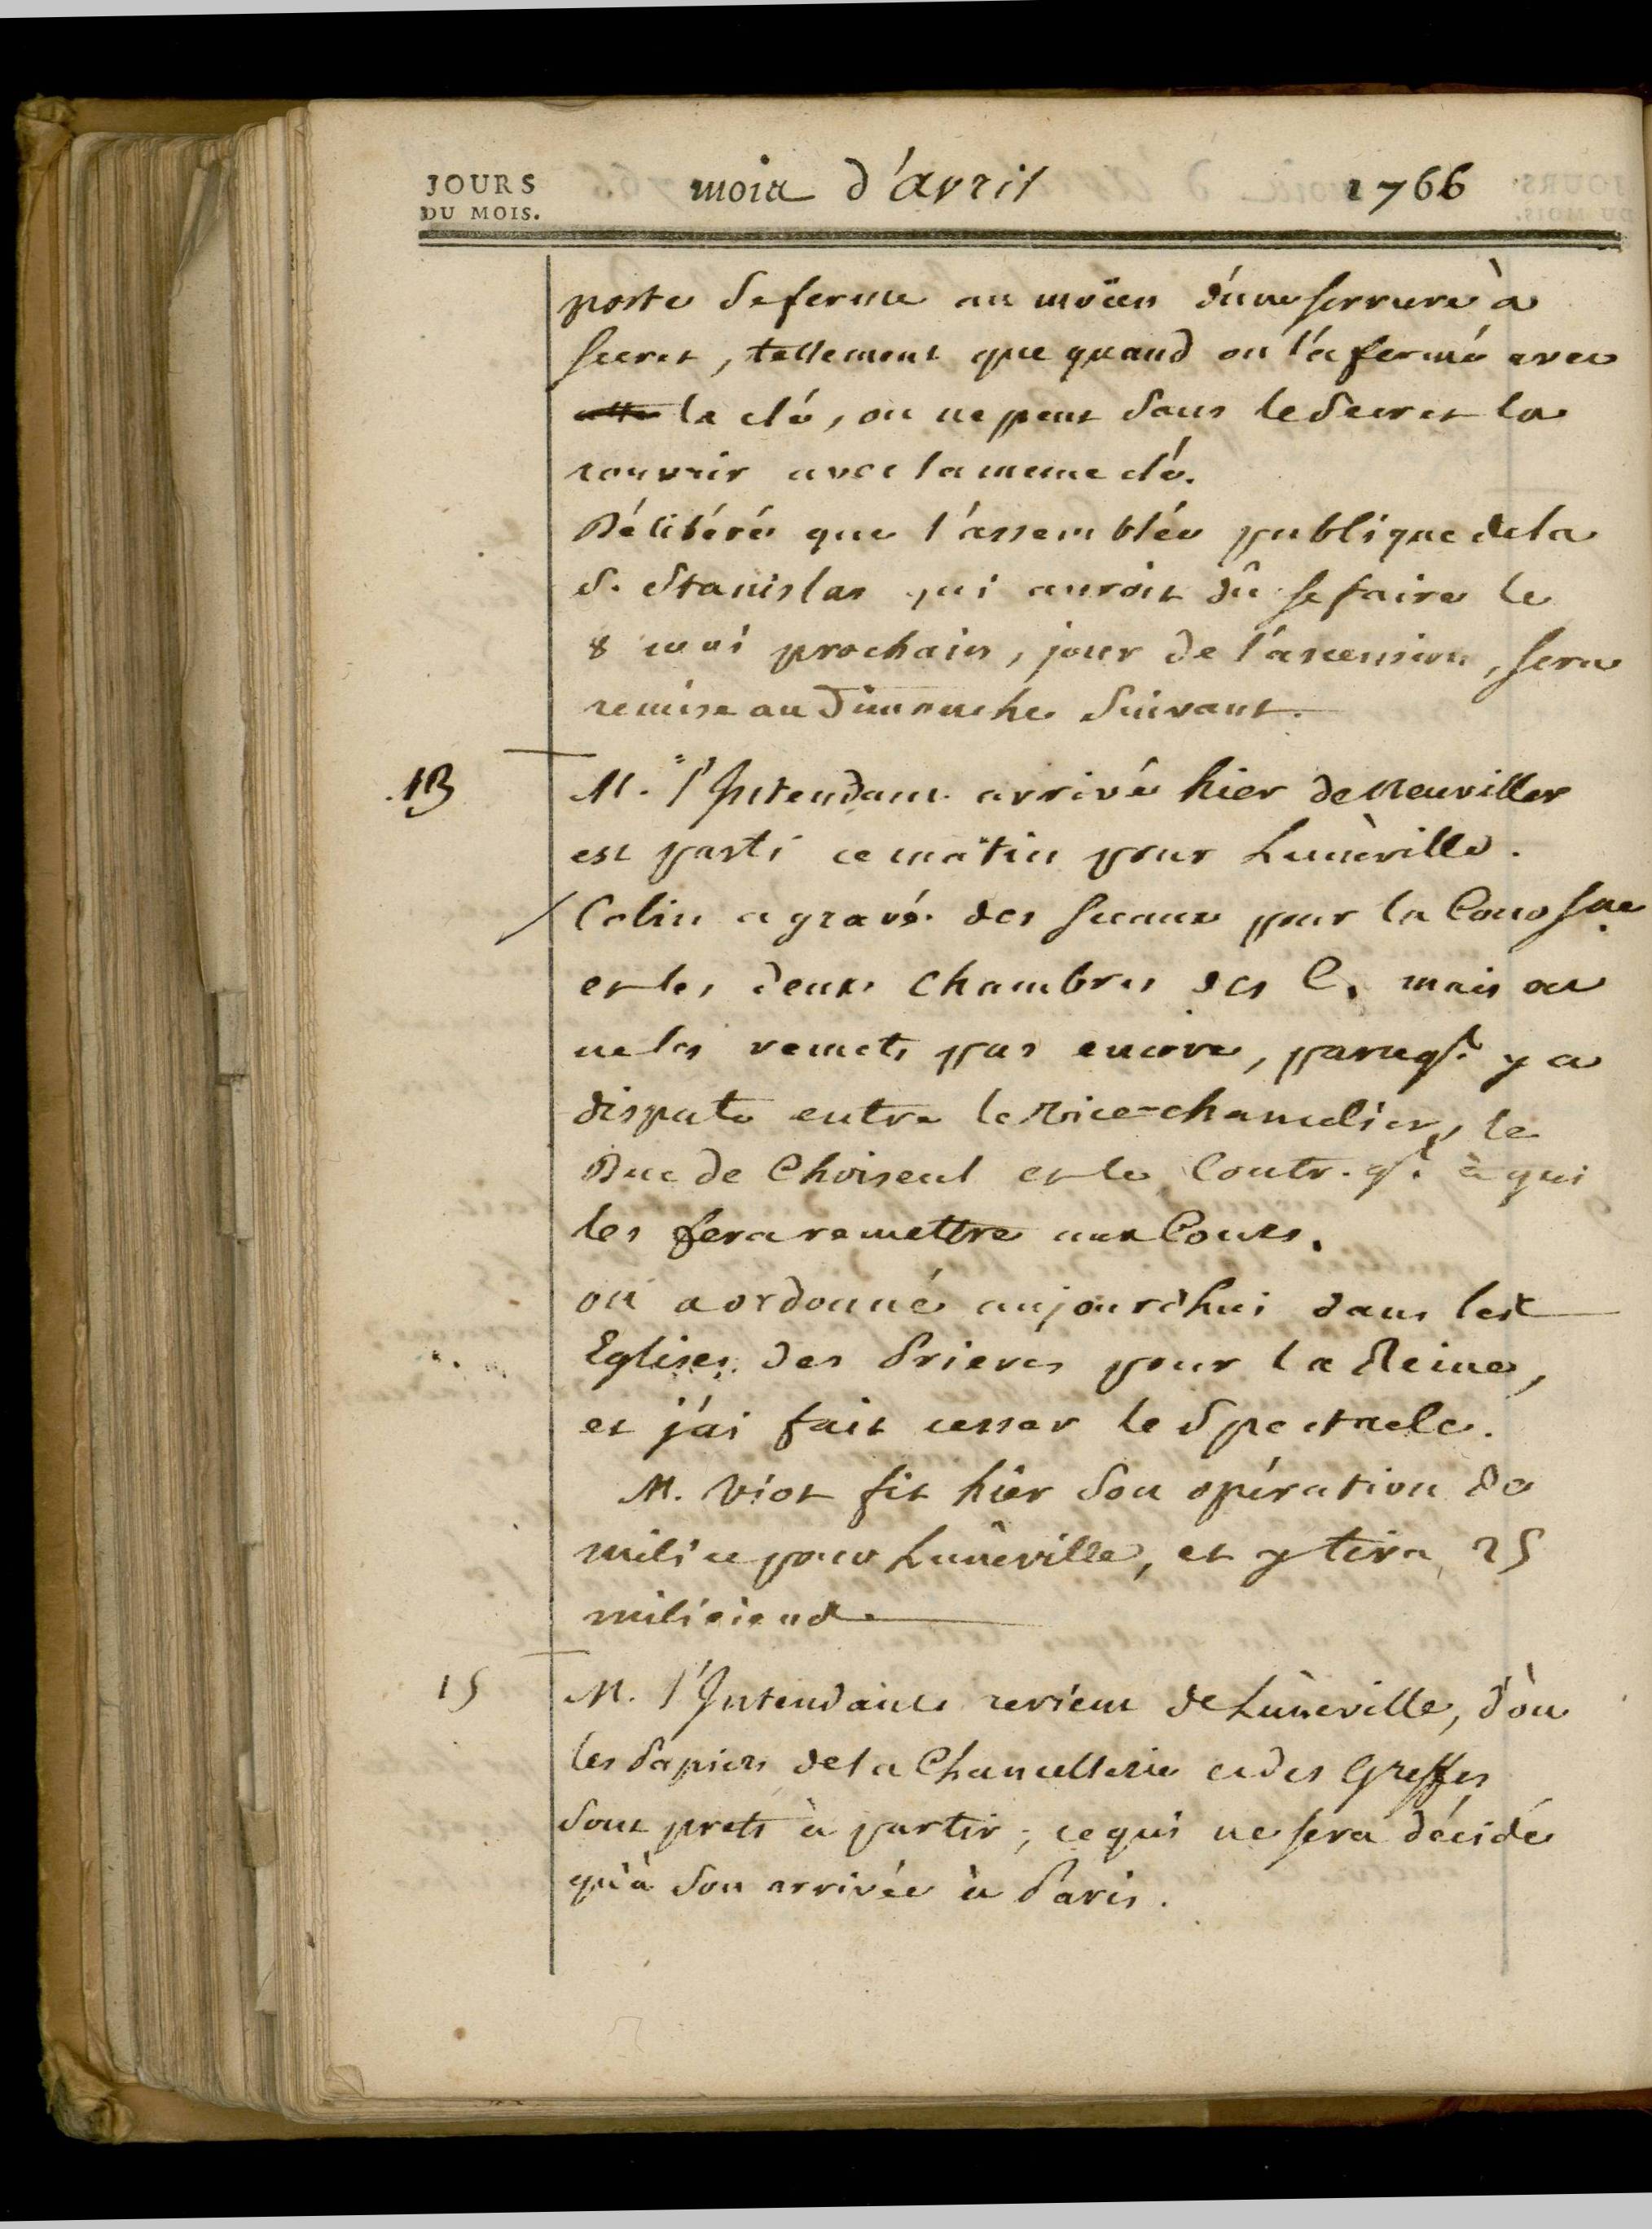 JOURS
DU MOIS.
mois d'avril 1766
porte se ferme au moïen d'une serrure à
secret, tellement que quand on l'a fermé avec
cette la clé, on ne peut sans le secret la
rouvrir avec la meme clé.
Délibéré que l'assemblée publique de la
S. Stanislas qui auroit dû se faire le
8 mai prochain, jour de l'ascension, sera
remise au Dimanche suivant.
13
M. l'Intendant arrivé hier de Neuviller
est parti ce matin pour Lunéville.
Colin a gravé des sceaux pour la Cour Sne
et les deux chambres des C. mais on
ne les remets pas encore, parcequ'il y a
dispute entre le Vice-chancelier, le
Duc de Choiseul et le Contr. gl. à qui
les fera remettre aux Cours.
on a ordonné aujourd'hui dans les
Eglises des Prieres pour la Reine,
et j'ai fait cesser le Spectacle.
M. Viot fit hier son opération de
milice pour Lunéville, et y tira 25
miliciens
15
M. l'Intendant revient de Lunéville, d'où
les Papiers de la Chancellerie et des Greffes
sont prets à partir; ce qui ne sera décidé
qu'à son arrivée à Paris.